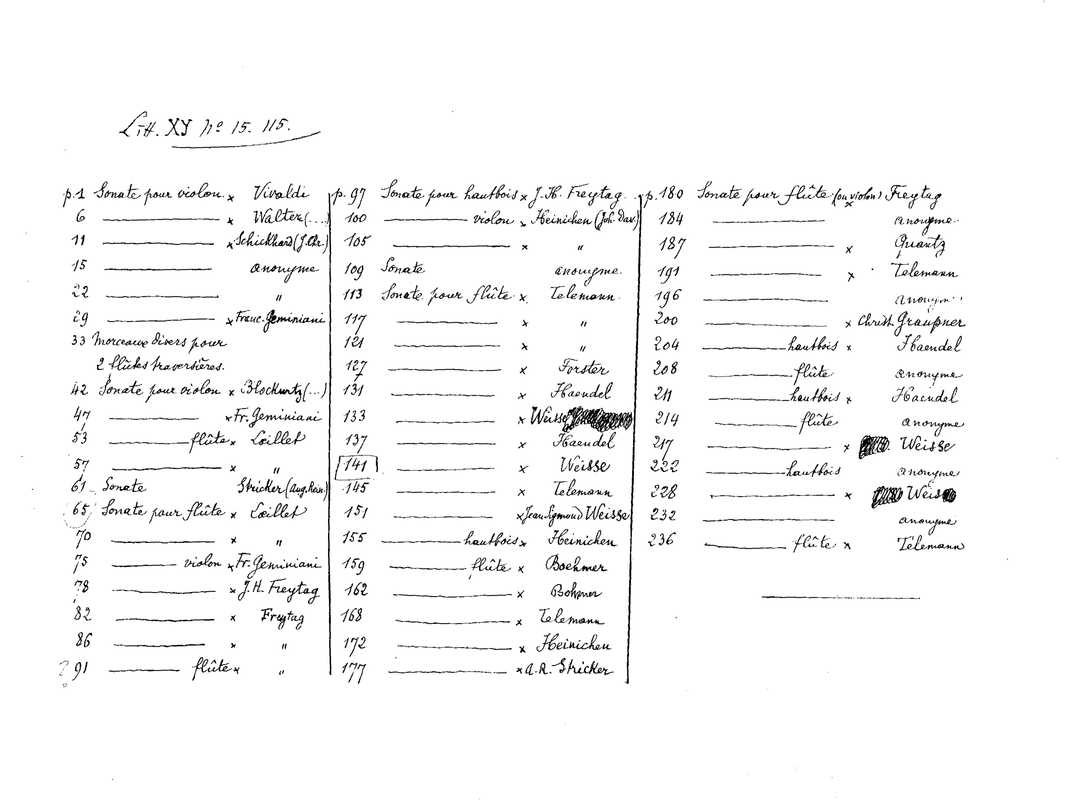 Litt. XY no 15. 115.
p. 1 Sonate pour violon. x Vivaldi
6 ——— x Walter (...)
11 ——— x Schickhard (J. Chr.)
15 ——— anonyme
22 ——— "
29 ——— x Franc. Geminiani
33 Morceaux divers pour
2 flûtes traversières.
42 Sonate pour violon x Blockwitz (...)
47 ——— x Fr. Geminiani
53 ——— flûte x Lœillet
57 ——— x "
61 Sonate Stricker (Aug. Rein.)
65 Sonate pour flûte x Lœillet
70 ——— x "
75 ——— violon x Fr. Geminiani
78 ——— x J. H. Freytag
82 ——— x Freytag
86 ——— x "
? 91 ——— flûte x "
p. 97 Sonate pour hautbois x J. H. Freytag
100 ——— violon x Heinichen (Joh. Dav.)
105 ——— x "
109 Sonate anonyme.
113 Sonate pour flûte x Telemann
117 ——— x "
121 ——— x "
127 ——— x Forster
131 ——— x Haendel
133 ——— x Weisse
137 ——— x Haendel
141 ——— x Weisse
145 ——— x Telemann
151 ——— x Jean Sigmund Weisse
155 ——— hautbois x Heinichen
159 ——— flûte x Boehmer
162 ——— x Bohmer
168 ——— x Telemann
172 ——— x Heinichen
177 ——— x A. R. Stricker
p. 180 Sonate pour flûte (ou violon) x Freytag
184 ——— anonyme.
187 ——— x Quantz
191 ——— x Telemann
196 ——— anonyme
200 ——— x Christ. Graupner
204 ——— hautbois x Haendel
208 ——— flûte anonyme
211 ——— hautbois x Haendel
214 ——— flûte anonyme
217 ——— x Weisse
222 ——— hautbois anonyme
228 ——— x Weisse
232 ——— anonyme
236 ——— flûte x Telemann